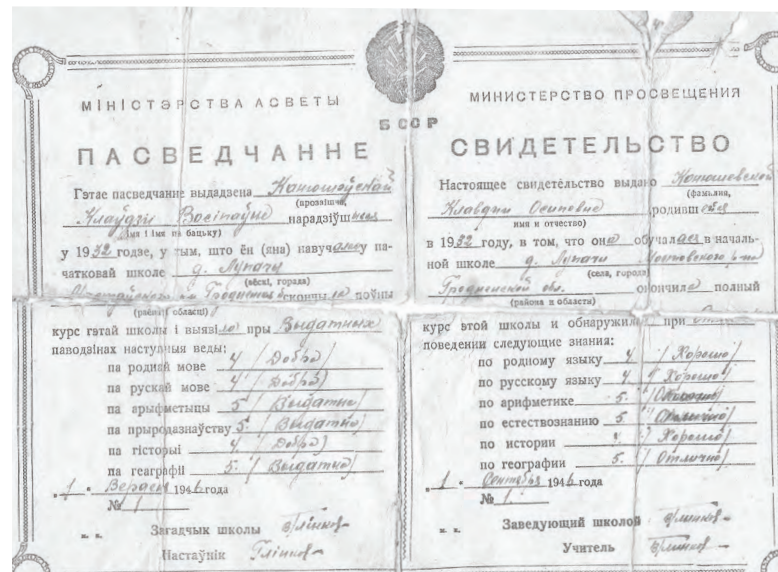 БССР
МІНІСТЭРСТВА АСВЕТЫ
ПАСВЕДЧАННЕ
Гэтае пасведчанне выдадзена Канюшэўскай
(прозвішча,
Клаўдзіі Восіпаўне нарадзіўшыся
імя і імя па бацьку)
у 1932 годзе, у тым, што ён (яна) навучалася у па-
чатковай школе д. Лупачи
(вёскі, горада)
(раён і вобласці)
скончыла поўны
курс гэтай школы і выявіла пры Выдатных
паводзінах наступныя веды:
па роднай мове 4 (Добра)
па рускай мове 4 (Добра)
па арыфметыцы 5 (Выдатна)
па прыродазнаўству 5 (Выдатна)
па гісторыі 4 (Добра)
па геаграфіі 5 (Выдатна)
"1" Верасня 1946 года
№ 1
м. п. Загадчык школы
Настаўнік
МИНИСТЕРСТВО ПРОСВЕЩЕНИЯ
СВИДЕТЕЛЬСТВО
Настоящее свидетельство выдано Конюшевской
(фамилия,
Клавдии Осиповне родившейся
имя и отчество)
в 1932 году, в том, что она обучалась в началь-
ной школе д. Лупачи Мостовского р-на
(села, города)
Гродненской обл. окончила полный
(района и области)
курс этой школы и обнаружила при
поведении следующие знания:
по родному языку 4 (Хорошо)
по русскому языку 4 (Хорошо)
по арифметике 5 (Отлично)
по естествознанию 5 (Отлично)
по истории (Хорошо)
по географии 5 (Отлично)
"1" Сентября 1946 года
№ 1
м. п. Заведующий школой
Учитель